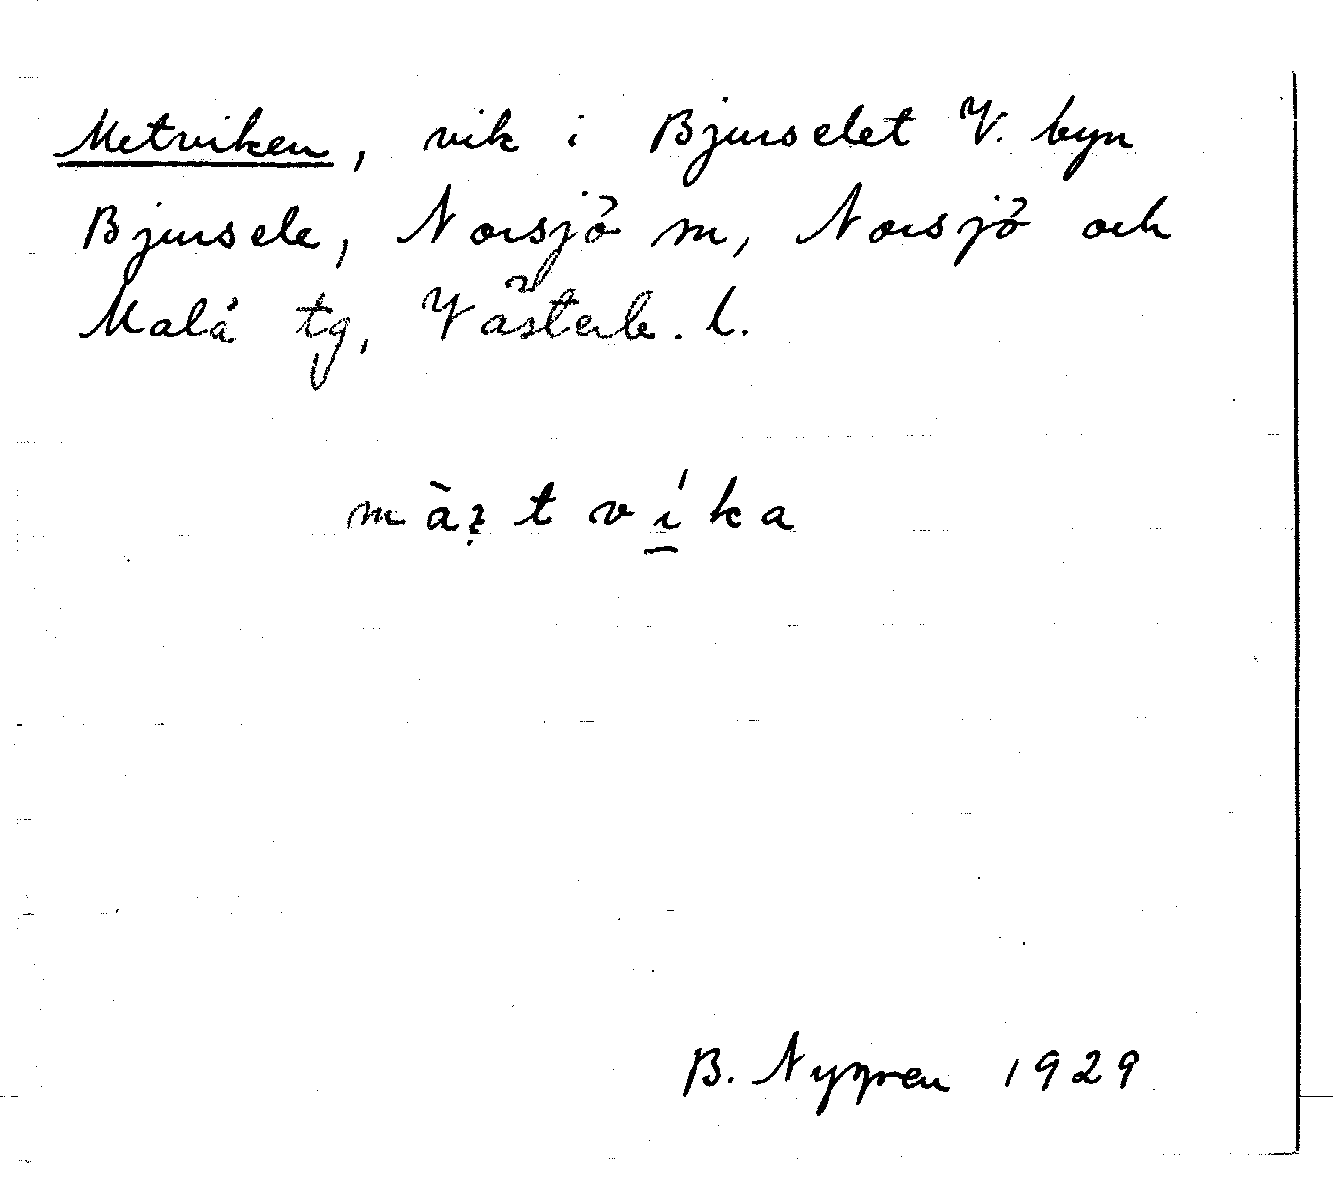 Metviken, vik i Bjurselet V. byn
Bjursele, Norsjö sn, Norsjö och
Malå tg, Västerb. l.
B. Nygren 1929